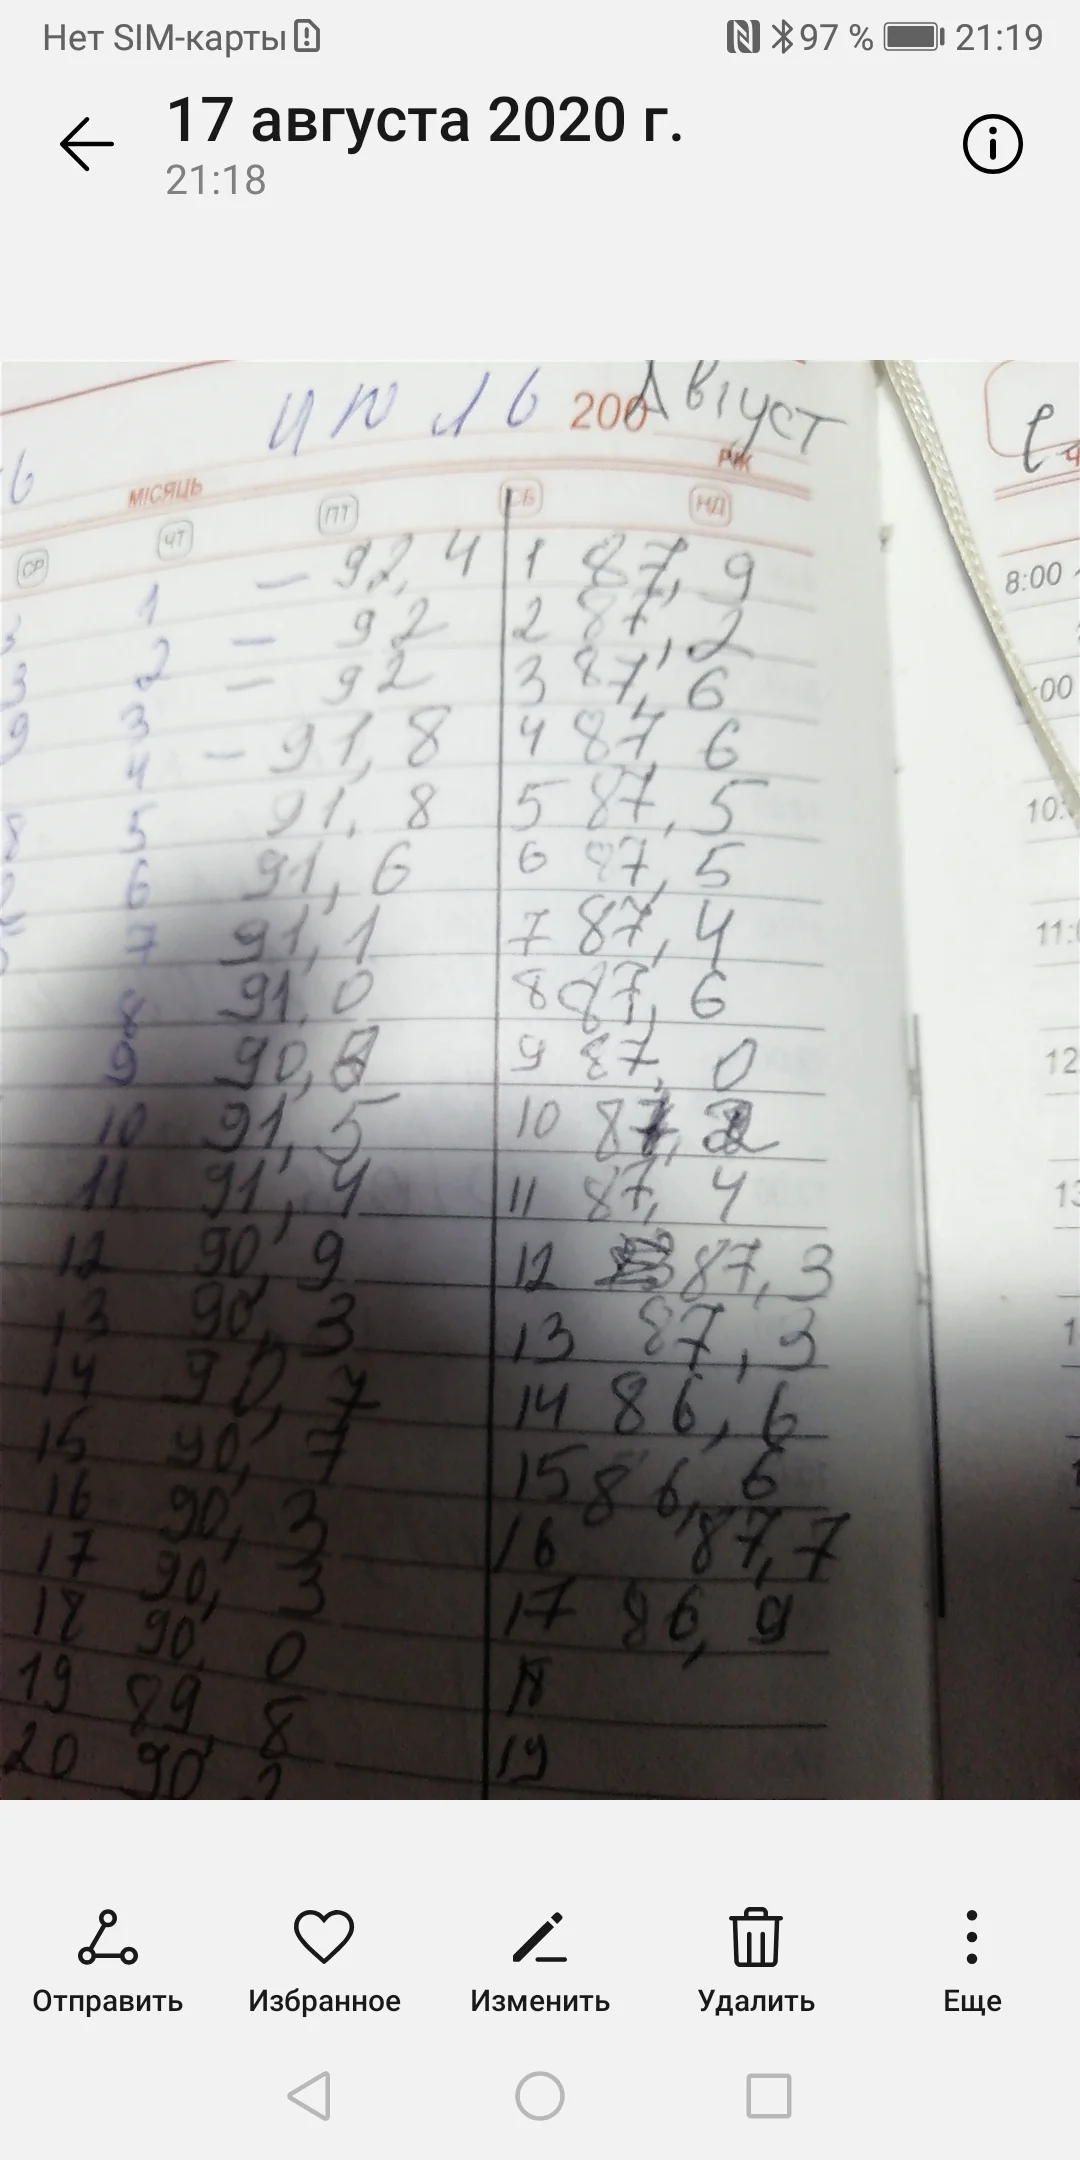 Нет SIM-карты 97 % 21:19
17 августа 2020 г.
21:18
ИЮЛЬ 200 Август
МІСЯЦЬ РІК
СР ЧТ ПТ СБ НД
1 – 92,4 1 87,9
8:00
2 – 92 2 87,2
3 – 92 3 87,6
4 – 91,8 4 87,6
5 91,8 5 87,5
10:
6 91,6 6 87,5
7 91,1 7 87,4
11:0
8 91,0 8 87,6
9 90, 9 87,0
12
10 91,5 10 87,2
11 91,4 11 87,4
13
12 90,9 12 87,3
13 90,3 13 87,3
14 90,7 14 86,6
15 90,7 15 86,6
16 90,3 16 87,7
17 90,3 17 86,9
18 90,0 18
19 89,8 19
20 90
Отправить Избранное Изменить Удалить Еще